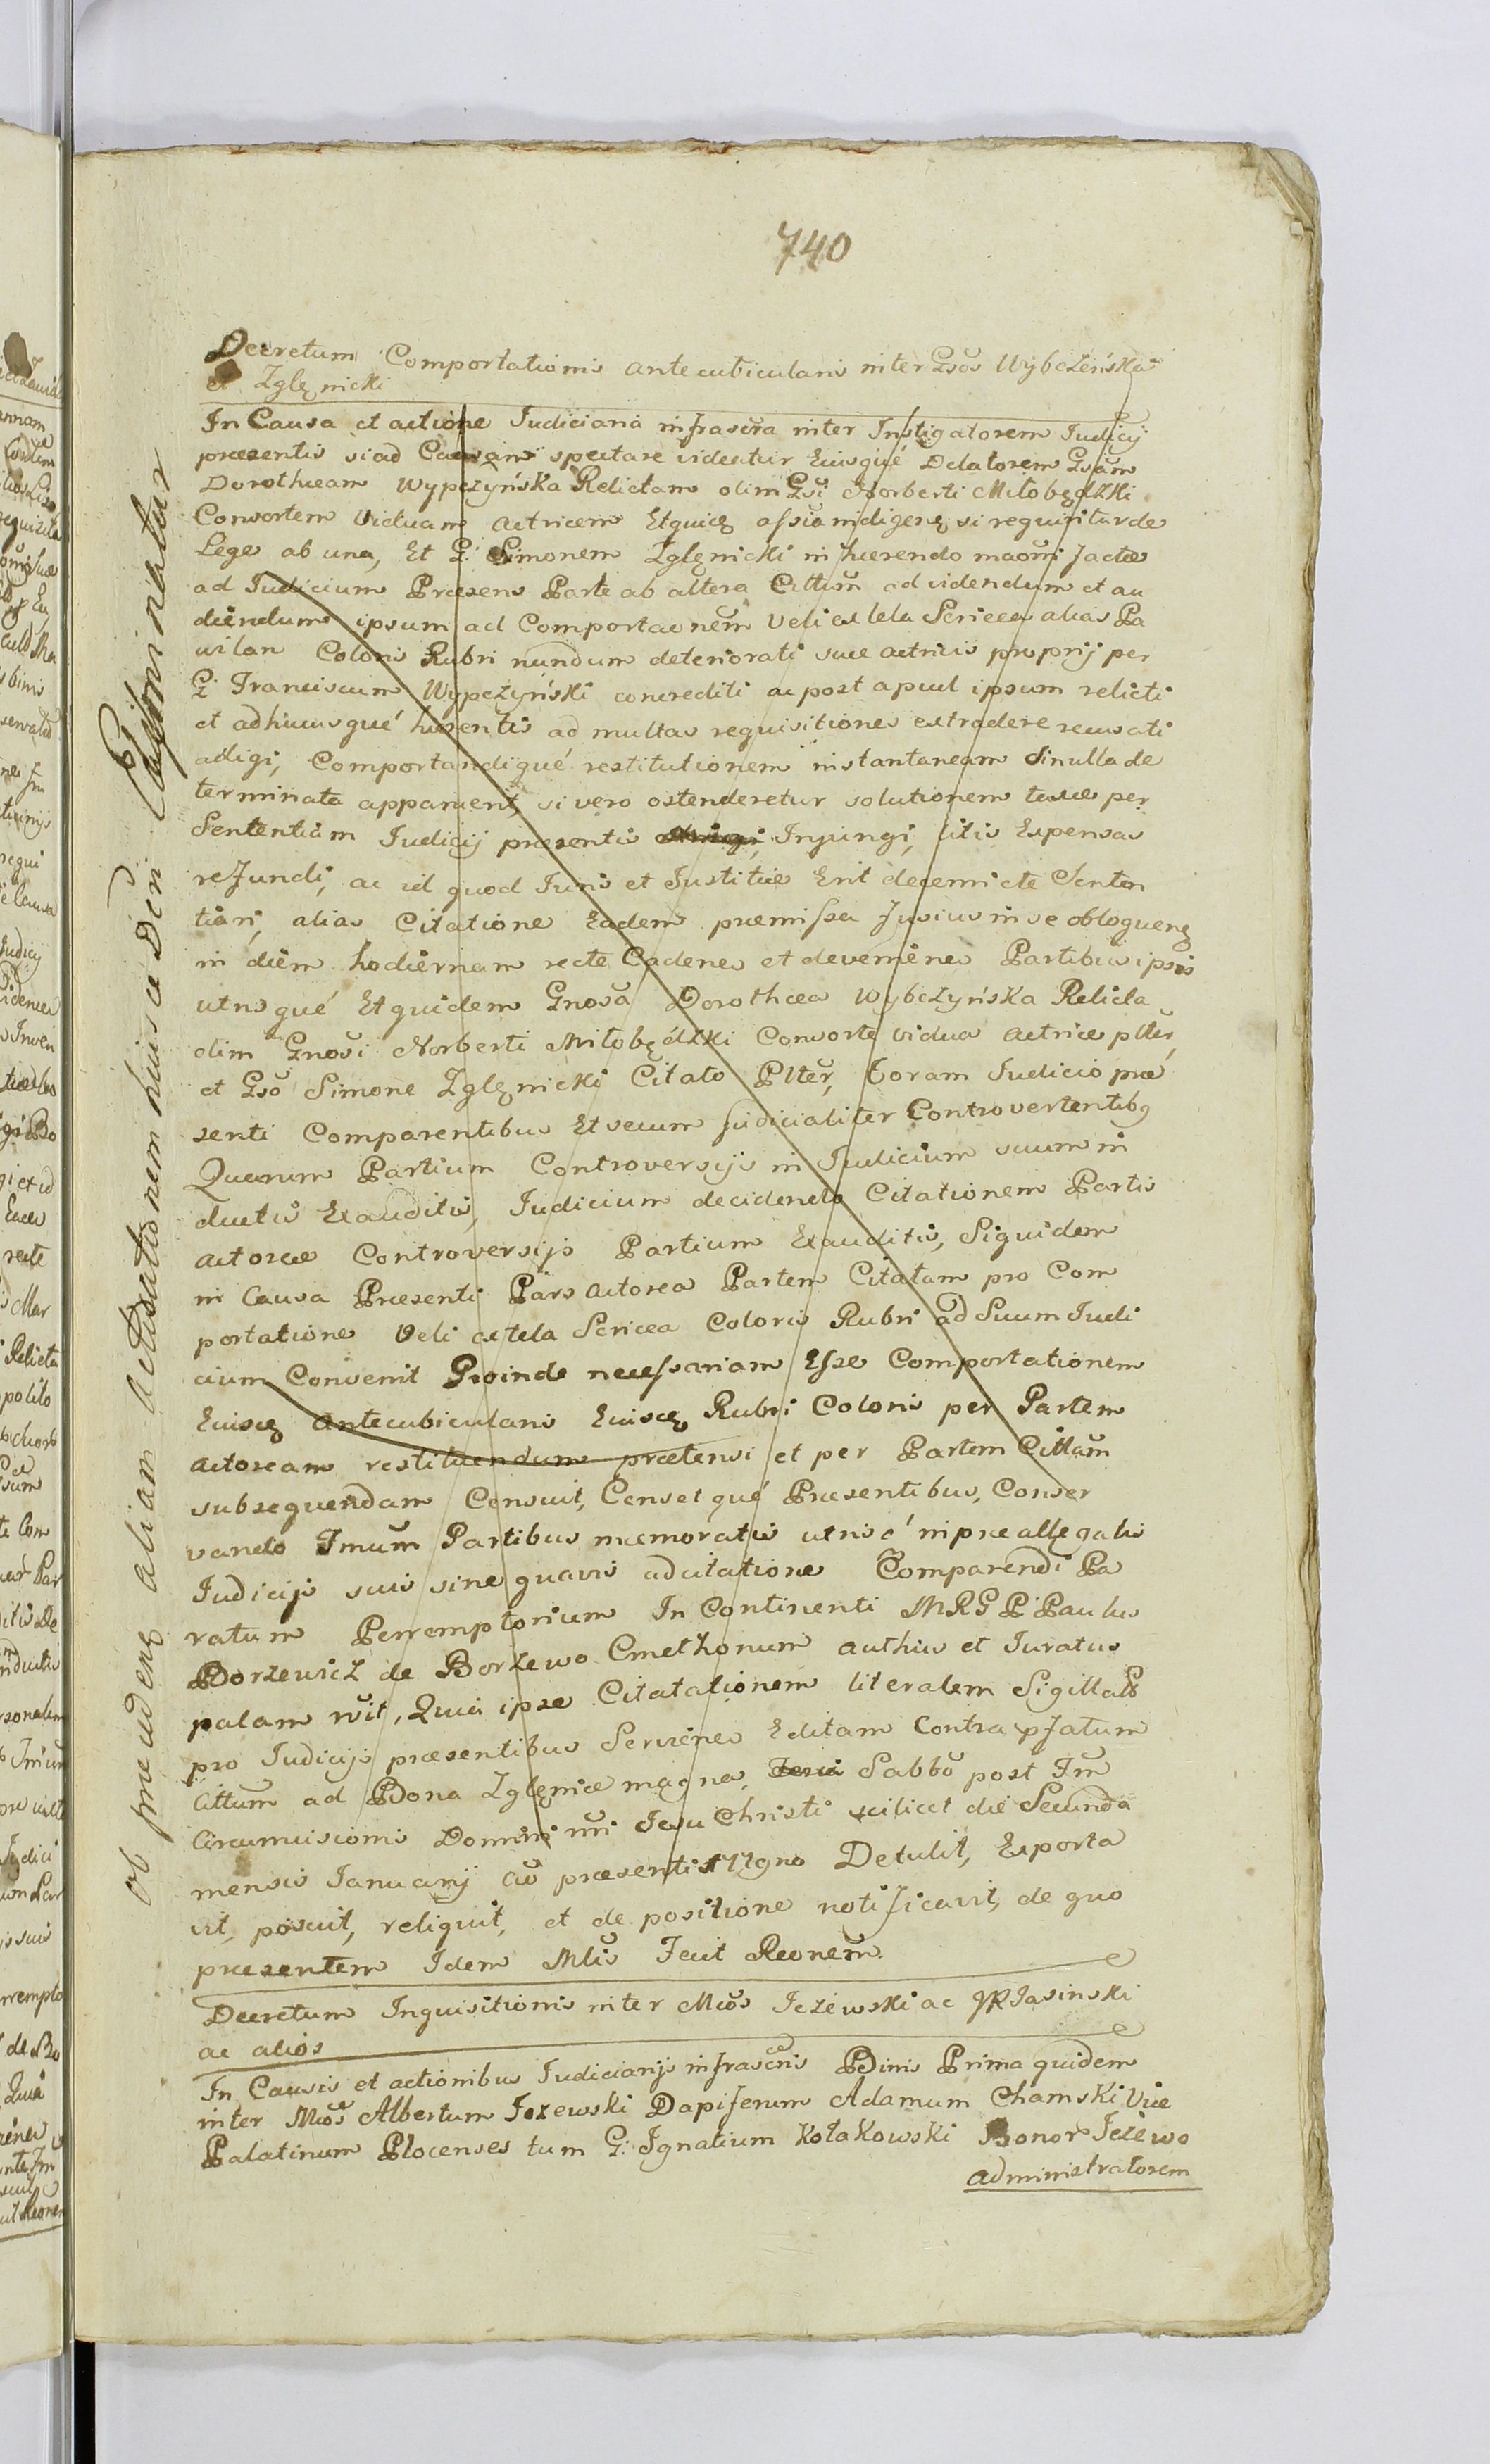 740
Decretum Comportationis antecubicularis inter Gsos Wybczyńska
et Zglęnicki
In Causa et actione Judiciaria infrascra inter Instigatorem Judicij
præsentis si ad Causam spectare videatur Eiusqué Delatorem Gsam
Dorotheam Wypczyńska Relictam olim Gsi Norberti Miłobędzki
Consortem Viduam actricem Etquidę assia indigenę si requiritur de
Lege ab una, Et G: Simonem Zglęnicki in hærendo maoni factæ
ad Judicium Præsens Parte ab altera Cittum ad videndum et au
diendum ipsum ad Comportaonem Veli ex tela Sericea alias Pa
wilan Coloris Rubri nundum deteriorati suæ actricis proprij per
G: Franciscum Wypczyński concrediti ac post apud ipsum relicti
et adhucusqué hærentis ad multas requisitiones extradere recusati
adigi, Comportandiqué restitutionem instantaneam si nulla de
terminata apparuerit, si vero ostenderetur solutionem taxæ per
Sententiam Judicij præsentis Injungi, litis Expensas
refundi, ac id quod Juris et Justitiæ Erit decerni et Senten
tiari, alias Citatione Eadem præmissa fusius in se obloquenę
in diem hodiernam recte Cadenes et devenienes Partibus ipsis
utrisqué Et quidem Gnosa Dorothea Wybczyńska Relicta
olim Gnosi Norberti Miłobędzki Consorte vidua actrice plter,
et Gso Simone Zglęnicki Citato Plter, Coram Judicio præ
senti Comparentibus Et secum judicialiter Controvertentibq
Quarum Partium Controversijs in Judicium suum in
ductis Exauditis, Judicium decidendo Citationem Partis
actoreæ Controversijs Partium Exauditis, Siquidem
in Causa Præsenti Pars actorea Partem Citatam pro Com
portatione Veli ex tela Sericea Coloris Rubri ad Suum Judi
cium Convenit Proinde necessariam Esse Comportationem
Eiusdę antecubicularis Eiusdę Rubri Coloris per Partem
actoream restituendum prætensi et per Partem Cittam
subsequendam Censuit, Censetqué Præsentibus, Conser
vando Tmum Partibus memoratis utrisq in præallegatis
Judicijs suis sine quavis adcitatione Comparendi Pa
ratum Perremptorium In Continenti MRG P: Paulus
Borzewicz de Borzewo Cmethonum authus et Juratus
palam rvit, Quia ipse Citatationem literalem Sigillatō
pro Judicijs præsentibus Servienes Editam Contra pfatum
Cittum ad Bona Zglęnice magna, Sabbo post Fm
Circumcisionis Domini nri Jesu Christi scilicet die Secunda
mensis Januarij ao præsenti 177gno Detulit, Exporta
vit, posuit, reliquit, et de positione notificavit, de quo
præsentem Idem Mlis Fecit Reonem.
Decretum Inquisitionis inter Mcos Jeżewski ac Jasinski
ac alios
In Causis et actionibus Judiciarijs infrascris Binis Prima quidem
inter Mcos Albertum Jezewski Dapiferum Adamum Chamski Vice
Palatinum Plocenses tum G: Ignatium Kołakowski Bonor Jeżewo
administratorem
ob præudenę aliam acticationem huius ce Dcri Cassominatur